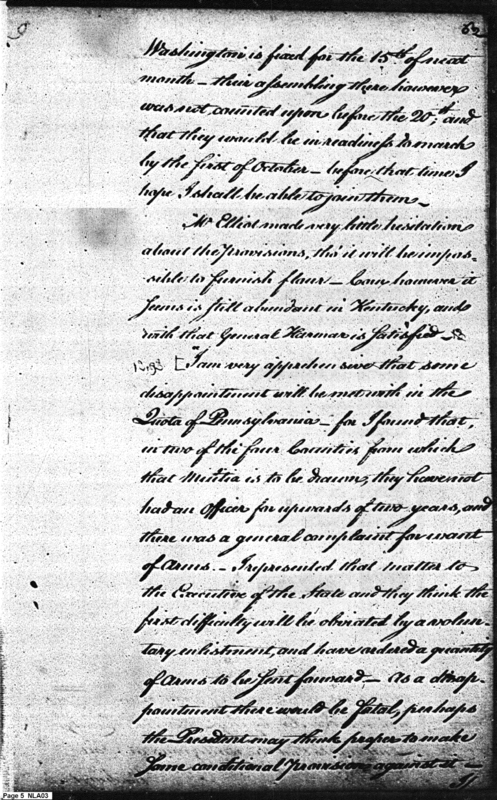 Washington is fixed for the 15th of next
month – their assembling there however
was not counted upon before the 20th, and
that they would be in readiness to march
by the first of October – before that time I
hope I shall be able to join them –
Mr Elliot made very little hesitation
about the Provisions, tho' it will be impos-
sible to furnish flour – Corn however it
seems is still abundant in Kentucky, and
with that General Harmar is satisfied –
"I am very apprehensive that some
disappointment will be met with in the
Quota of Pennsylvania – for I found that,
in two of the four Counties from which
that Militia is to be drawn, they have not
had an Officer for upwards of two years, and
there was a general complaint for want
of Arms. – I represented that matter to
the Executive of the State and they think the
first difficulty will be obviated by a volun-
tary enlistment, and have ordered a quantity
of Arms to be sent forward – As a disap-
pointment there would be fatal, perhaps
the President may think proper to make
some conditional Provision against it –
Page 5 NLA03